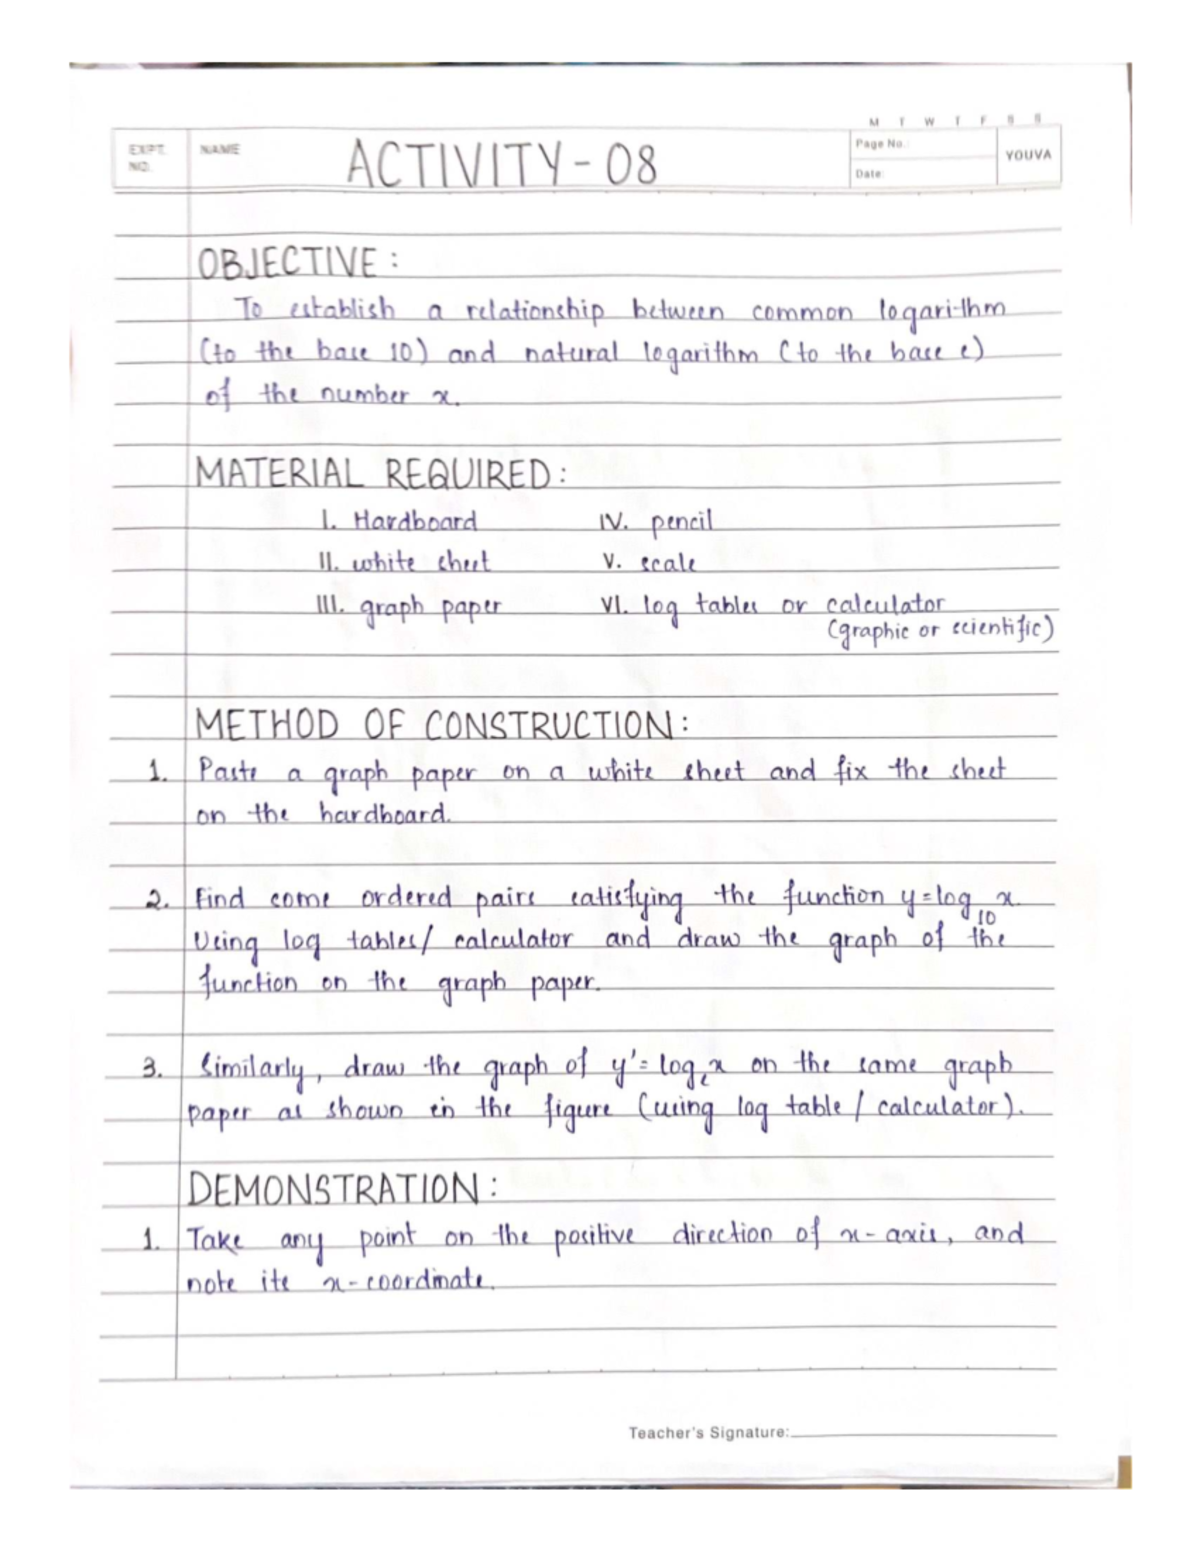 M T W T F S S
EXPT. NO. NAME ACTIVITY - 08 Page No.: YOUVA
Date:
OBJECTIVE :
To establish a relationship between common logarithm
(to the base 10) and natural logarithm (to the base e)
of the number x.
MATERIAL REQUIRED :
I. Hardboard IV. pencil
II. white sheet V. scale
III. graph paper VI. log tables or calculator
(graphic or scientific)
METHOD OF CONSTRUCTION :
1. Paste a graph paper on a white sheet and fix the sheet
on the hardboard.
2. Find some ordered pairs satisfying the function y = log₁₀ x.
Using log tables / calculator and draw the graph of the
function on the graph paper.
3. Similarly, draw the graph of y' = logₑx on the same graph
paper as shown in the figure (using log table / calculator).
DEMONSTRATION :
1. Take any point on the positive direction of x-axis, and
note its x-coordinate.
Teacher's Signature: